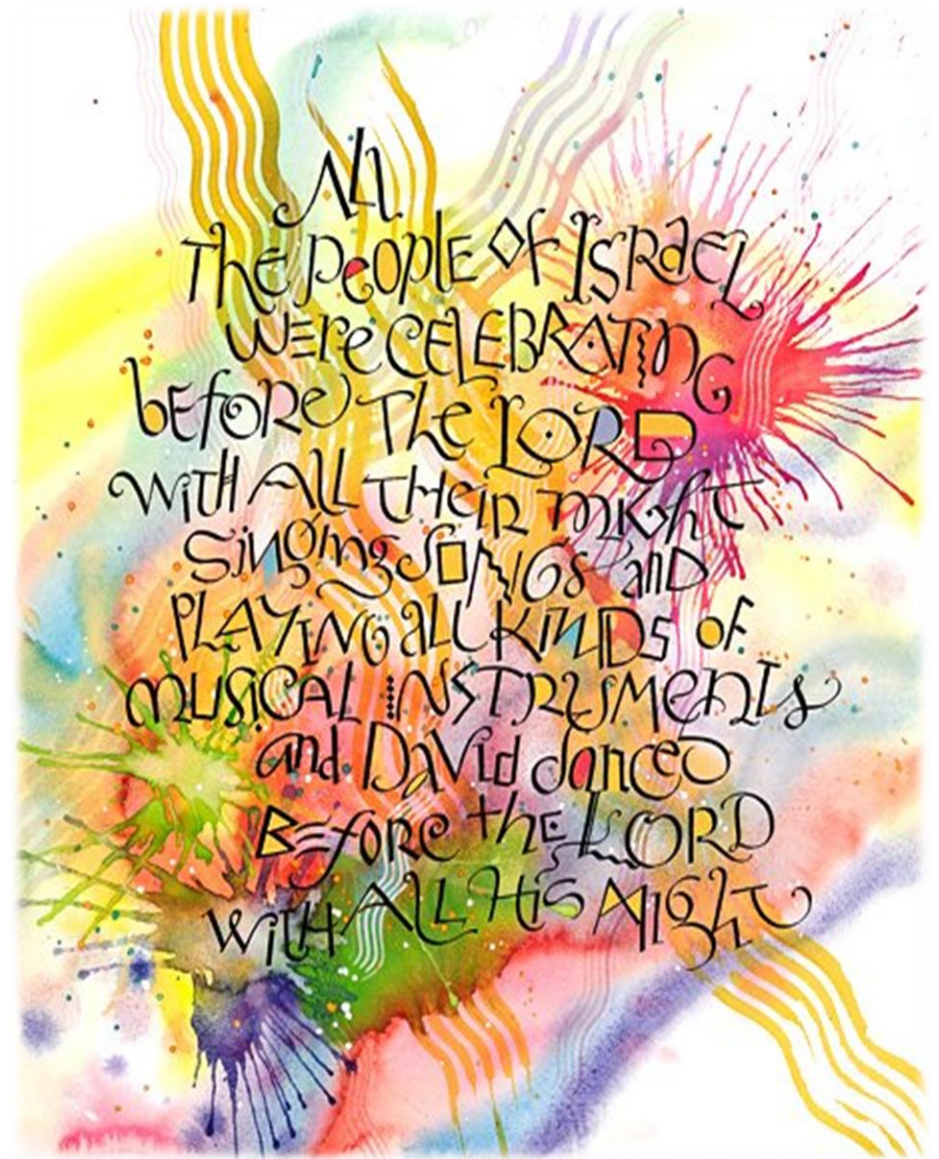 All
The People of Israel
were celebrating
before The LORD
with all their might
singing songs and
playing all kinds of
musical instruments
and David danced
Before the LORD
with all His might